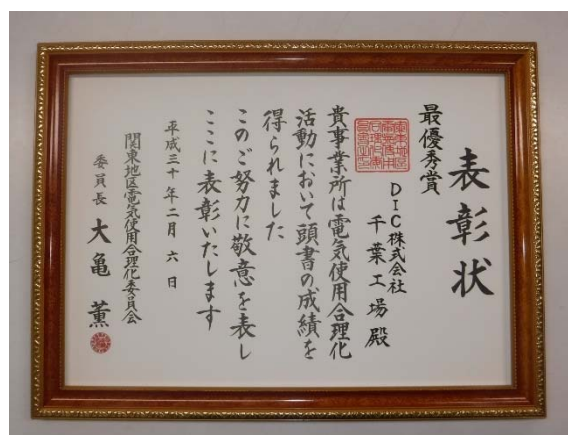 表彰状
最優秀賞
DIC株式会社
千葉工場殿
貴事業所は電気使用合理化
活動において頭書の成績を
得られました
このご努力に敬意を表し
ここに表彰いたします
平成三十年二月六日
関東地区電気使用合理化委員会
委員長 大亀薫